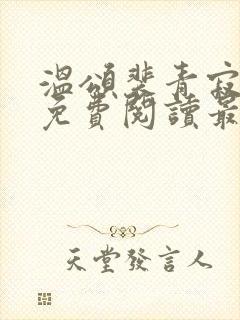 溫頌裴青寂
免費閱讀最
天堂發言人